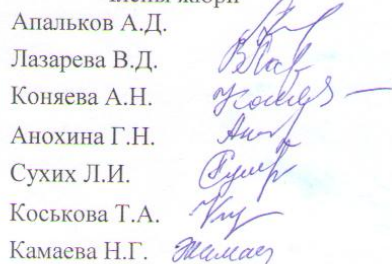 Члены жюри
Апальков А.Д.
Лазарева В.Д.
Коняева А.Н.
Анохина Г.Н.
Сухих Л.И.
Коськова Т.А.
Камаева Н.Г.